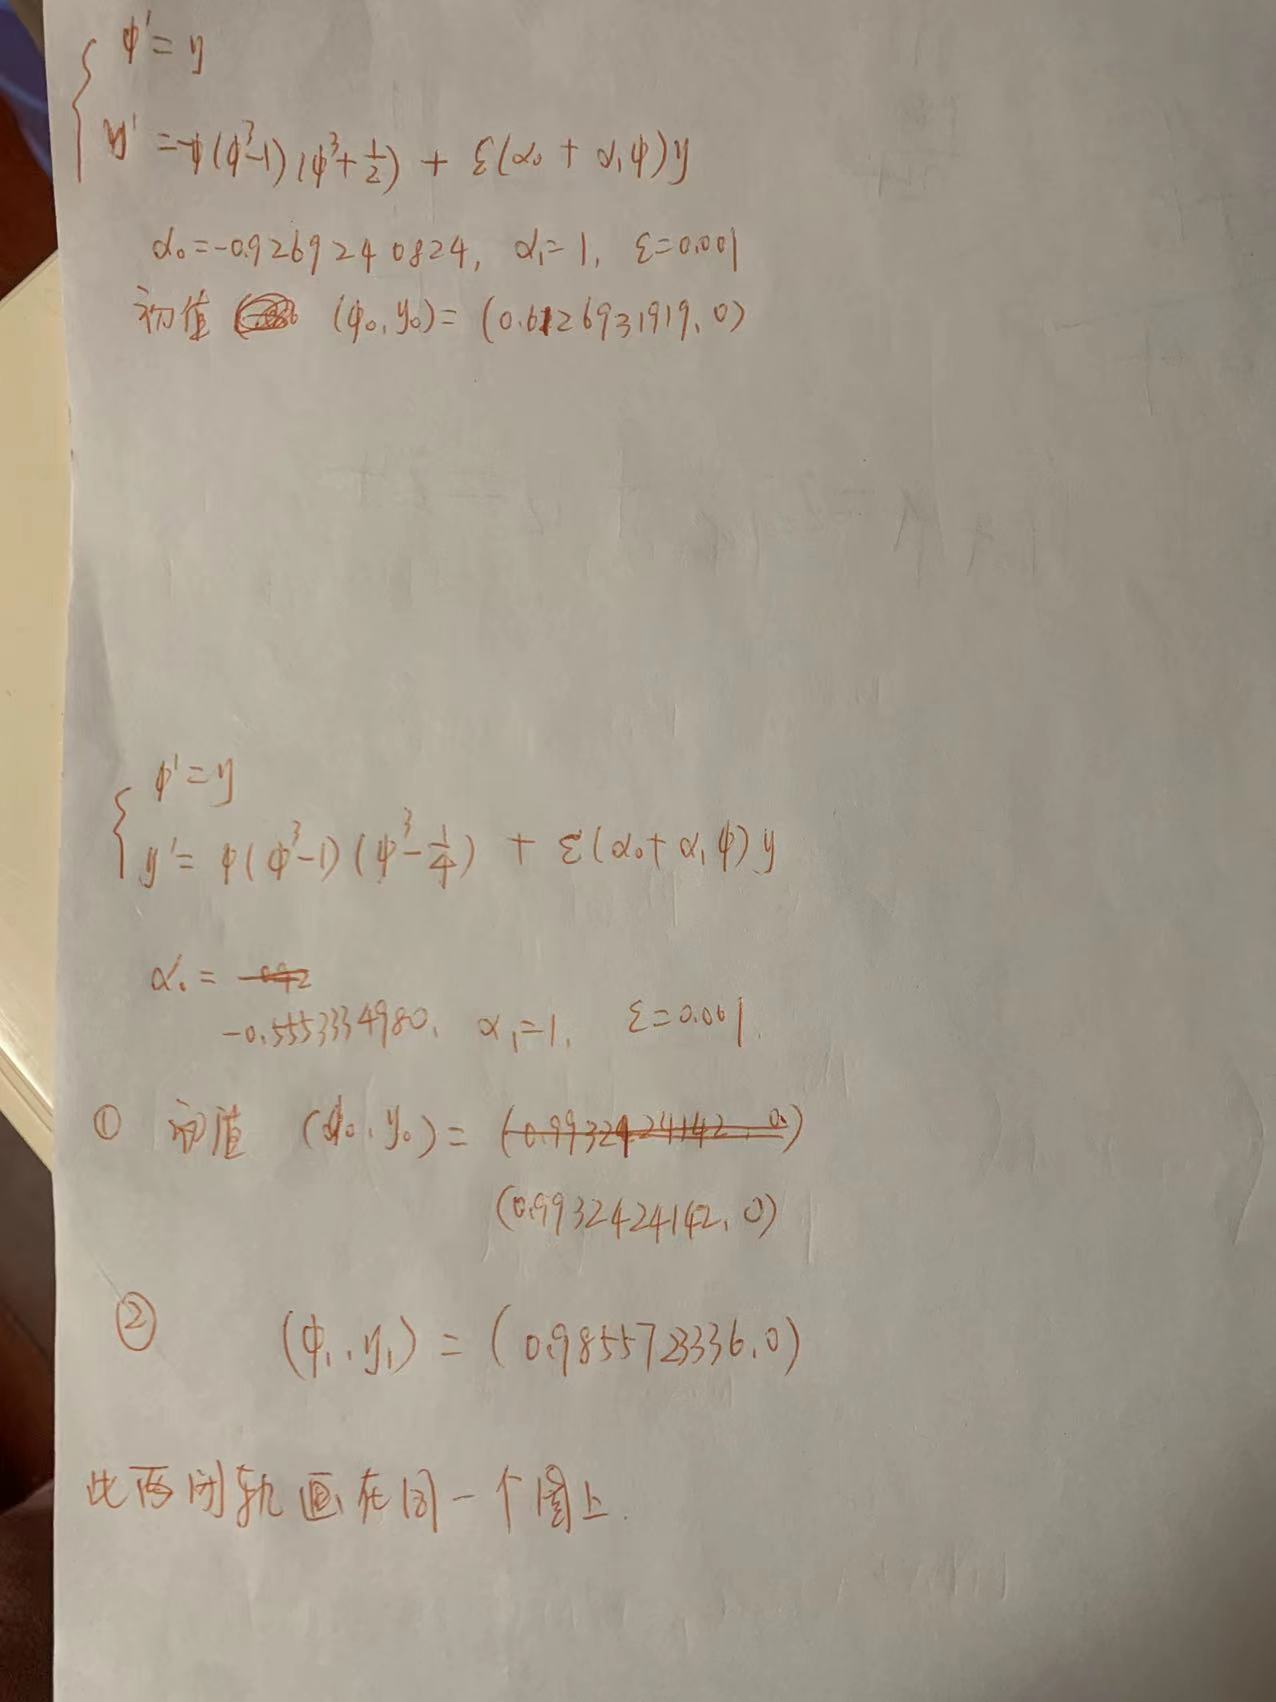 φ' = y
y' = -φ(φ³-1)(φ³+1/2) + ε(α₀ + α₁φ)y
α₀ = -0.9269240824, α₁ = 1, ε = 0.001
初值 (φ₀, y₀) = (0.6126931919, 0)
φ' = y
y' = φ(φ³-1)(φ³-1/4) + ε(α₀ + α₁φ)y
α₀ =
-0.5553334980, α₁ = 1, ε = 0.001.
① 初值 (φ₀, y₀) = (0.9932424142, 0)
(0.9932424142, 0)
② (φ₁, y₁) = (0.9855723336, 0)
此两闭轨画在同一个图上.